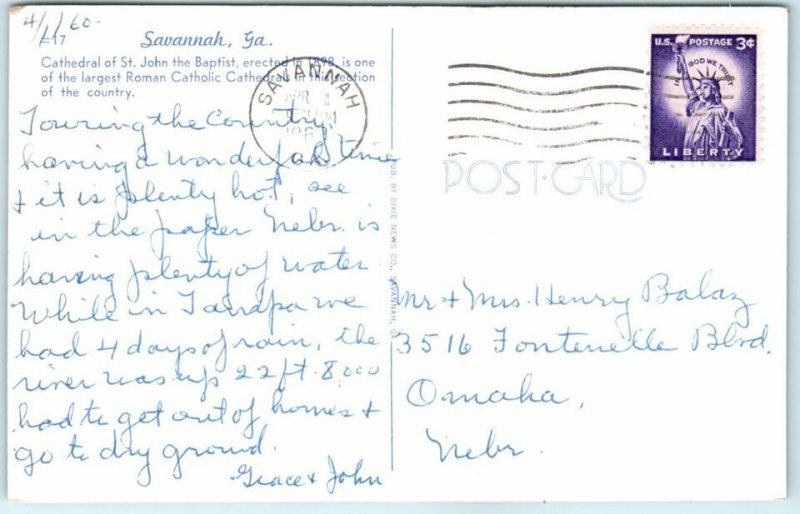 4/1/60-
E-17
Savannah, Ga.
Cathedral of St. John the Baptist, erected in 1898, is one
of the largest Roman Catholic Cathedrals in this section
of the country.
SAVANNAH
APR 1
PM
GA.
U.S. POSTAGE 3¢
IN GOD WE TRUST
LIBERTY
POST CARD
Touring the Country
having a wonderful time
+ it is plenty hot, see
in the paper Nebr. is
having plenty of water.
While in Tampa we
had 4 days of rain, the
river was up 22 ft. 8,000
had to get out of homes +
go to dry ground.
Grace + John
PUB. BY DIXIE NEWS CO., SAVANNAH, GA.
Mr + Mrs. Henry Balaz
3516 Fontenelle Blvd.
Omaha,
Nebr.